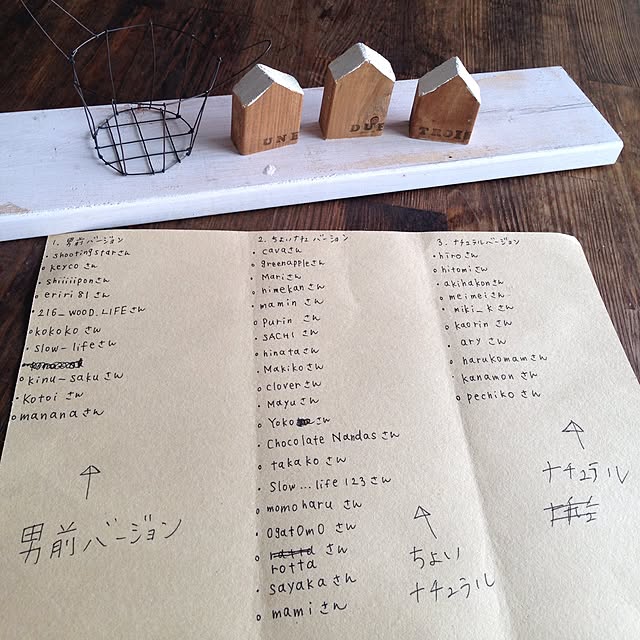 UNE
DUE
TROIS
1. 男前バージョン
・shootingstarさん
・keycoさん
・shiiiiiponさん
○eriri81さん
・216_WOOD.LIFEさん
○kokokoさん
・slow-lifeさん
○kinu-sakuさん
・Kotoiさん
○mananaさん
↑
男前バージョン
2. ちょいナチュバージョン
・cavaさん
○greenappleさん
・Mariさん
・himekanさん
・maminさん
・Purinさん
・SACHIさん
○hinataさん
・Makikoさん
○cloverさん
・Mayuさん
○Yokoさん
・Chocolate Nandasさん
○takakoさん
・Slow...life123さん
○momoharuさん
・OgatOmOさん
○rottaさん
・sayakaさん
・mamiさん
↑
ちょい
ナチュラル
3. ナチュラルバージョン
○hiroさん
○hitomiさん
・akihakonさん
○meimeiさん
・miki_kさん
○kaorinさん
・aryさん
○harukomamさん
・kanamonさん
○pechikoさん
↑
ナチュラル